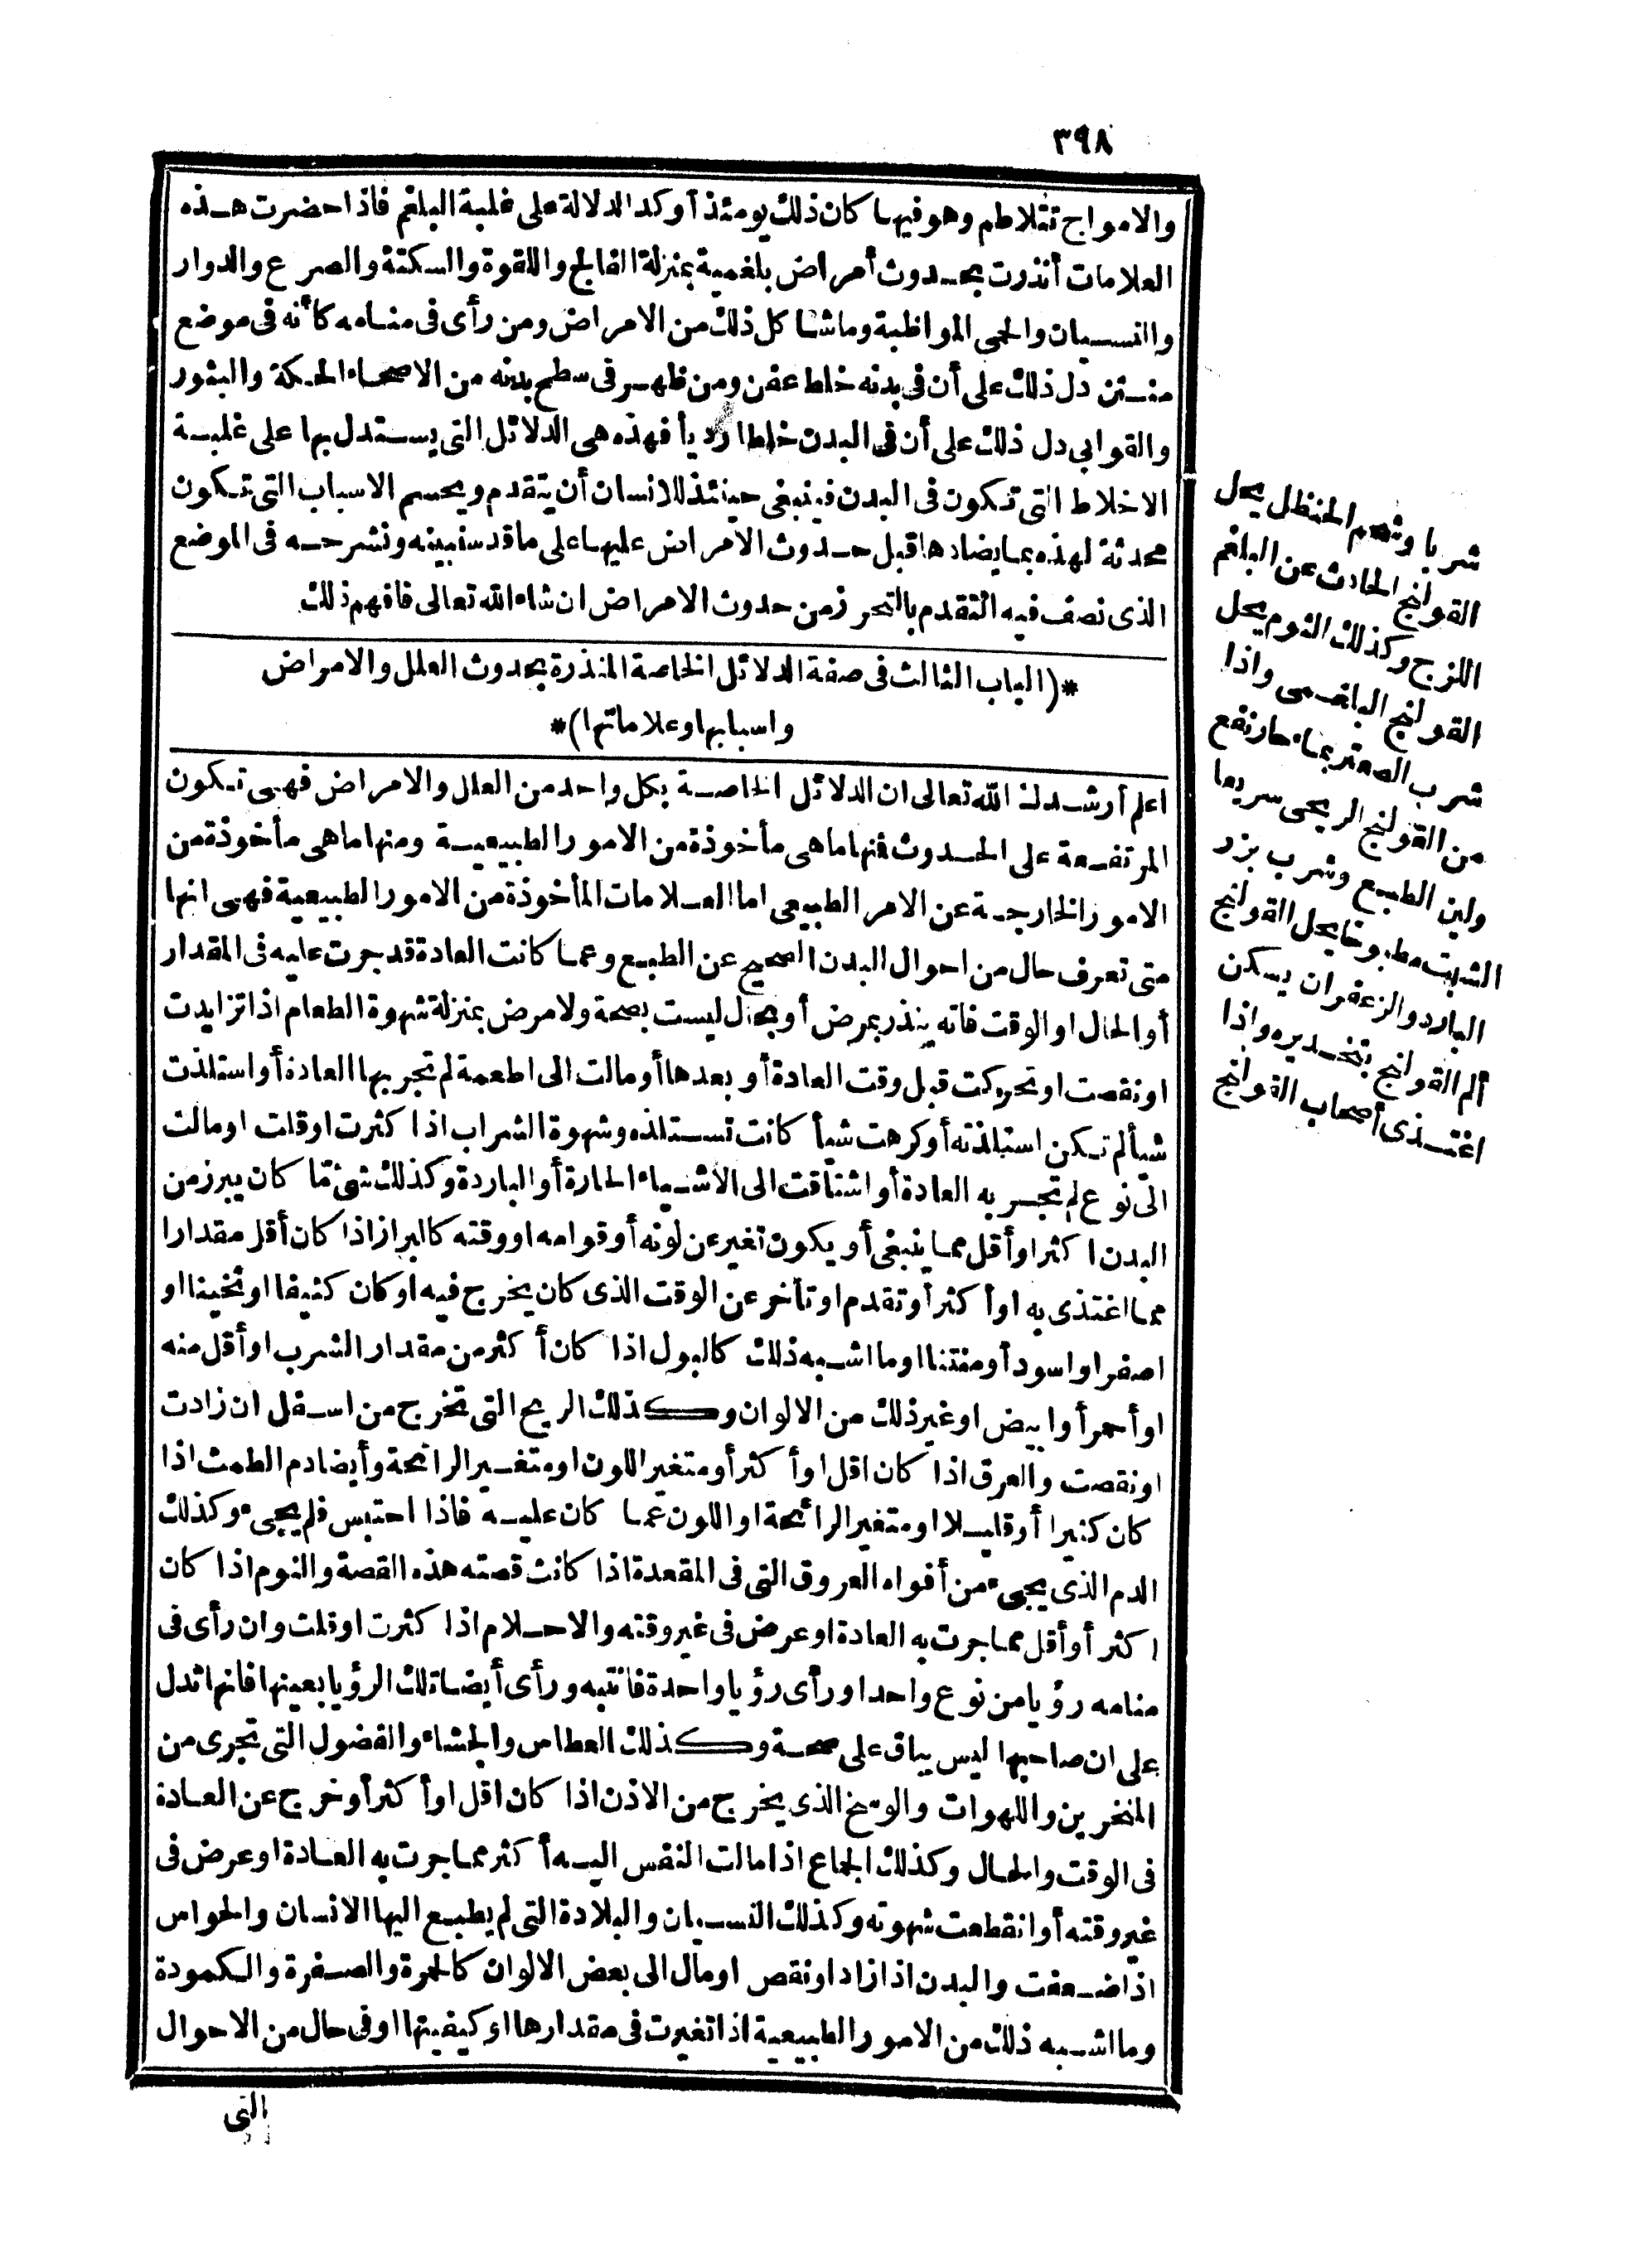 ٣٩٨
والامواج تتلاطم وهو فيها كان ذلك يومئذ أوكد الدلالة على غلبة البلغم فاذا حضرت هذه
العلامات أنذرت بحدوث أمراض بلغمية بمنزلة الفالج واللقوة والسكتة والصرع والدوار
والنسيان والحمى المواظبة وما شا كل ذلك من الامراض ومن رأى فى منامه كأنه فى موضع
منتن دل ذلك على أن فى بدنه خلط عفن ومن ظهر فى سطح بدنه من الاصحاء الحكة والبثور
والقوابى دل ذلك على أن فى البدن خلطا رديأ فهذه هى الدلائل التى يستدل بها على غلبة
الاخلاط التى تكون فى البدن فينبغى حينئذ للانسان أن يتقدم ويحسم الاسباب التى تكون
محدثة لهذه بما يضادها قبل حدوث الامراض عليها على ما قد سنبينه ونشرحه فى الموضع
الذى نصف فيه التقدم بالتحرز من حدوث الامراض ان شاء الله تعالى فافهم ذلك
*(الباب الثالث فى صفة الدلائل الخاصة المنذرة بحدوث العلل والامراض
واسبابها وعلاماتها)*
اعلم أرشدك الله تعالى ان الدلائل الخاصة بكل واحد من العلل والامراض فهى تكون
المرتفعة على الحدوث فنها ما هى مأخوذة من الامور الطبيعية ومنها ما هى مأخوذة من
الامور الخارجة عن الامر الطبيعى اما العلامات المأخوذة من الامور الطبيعية فهى انها
متى تعرف حال من احوال البدن الصحيح عن الطبع وعما كانت العادة قد جرت عليه فى المقدار
أو الحال او الوقت فانه ينذر بمرض أو بحال ليست بصحة ولا مرض بمنزلة شهوة الطعام اذا تزايدت
او نقصت او تحركت قبل وقت العادة أو بعدها أو مالت الى اطعمة لم تجر بها العادة أو استلذت
شيأ لم تكن استلذته أو كرهت شيأ كانت تستلذه وشهوة الشراب اذا كثرت او قلت او مالت
الى نوع لم تجر به العادة أو اشتاقت الى الاشياء الحارة أو الباردة وكذلك شئ مّا كان يبرز من
البدن اكثر او أقل مما ينبغى أو يكون تغير عن لونه أو قوامه او وقته كالبراز اذا كان أقل مقدارا
مما اغتذى به او أكثر أو تقدم او تأخر عن الوقت الذى كان يخرج فيه او كان كثيفا او ثخينا او
اصفر او اسود أو منتنا او ما اشبه ذلك كالبول اذا كان أكثر من مقدار الشرب او أقل منه
او أحمر أو ابيض او غير ذلك من الالوان وكذلك الريح التى تخرج من اسفل ان زادت
او نقصت والعرق اذا كان اقل او أكثر أو متغير اللون او متغير الرائحة وأيضا دم الطمث اذا
كان كثيرا أو قليلا او متغير الرائحة او اللون عما كان عليه فاذا احتبس فلم يجىء وكذلك
الدم الذى يجىء من أفواه العروق التى فى المقعدة اذا كانت قصته هذه القصة والنوم اذا كان
اكثر أو أقل مما جرت به العادة او عرض فى غير وقته والاحلام اذا كثرت او قلت وان رأى فى
منامه رؤيا من نوع واحد او رأى رؤيا واحدة فانتبه ورأى أيضا تلك الرؤيا بعينها فانها تدل
على ان صاحبها ليس بباق على صحة وكذلك العطاس والجشاء والفضول التى تجرى من
المنخرين واللهوات والوسخ الذى يخرج من الاذن اذا كان اقل او أكثر أو خرج عن العادة
فى الوقت والحال وكذلك الجماع اذا مالت النفس اليه أكثر مما جرت به العادة او عرض فى
غير وقته أو انقطعت شهوته وكذلك النسيان والبلادة التى لم يطبع اليها الانسان والحواس
اذا ضعفت والبدن اذا زاد او نقص او مال الى بعض الالوان كالحمرة والصفرة والكمودة
وما اشبه ذلك من الامور الطبيعية اذا تغيرت فى مقدارها او كيفيتها او فى حال من الاحوال
التى
شربا وشحم الحنظل يحل
القولنج الحادث عن البلغم
اللزج وكذلك الثوم يحل
القولنج البلغمى واذا
شرب الصعتر بماء حار نفع
من القولنج الريحى سريعا
ولين الطبع وشرب بزر
الشبت مطبوخا يحل القولنج
البارد والزعفران يسكن
ألم القولنج بتخديره واذا
اغتذى أصحاب القولنج